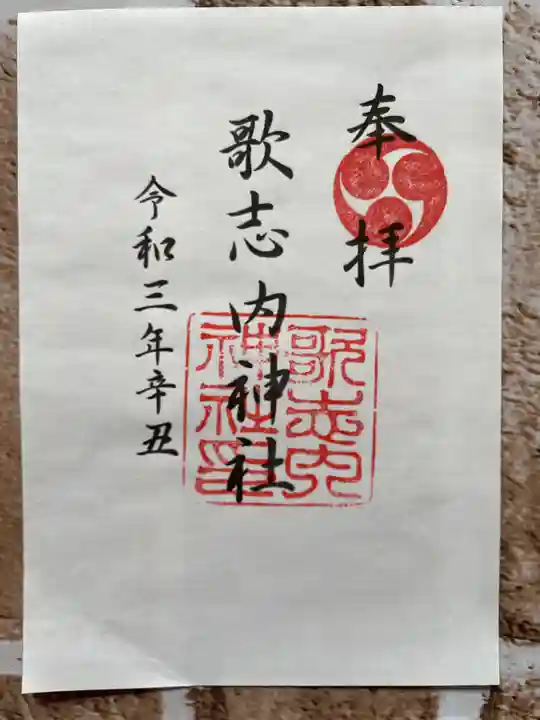 奉拝
歌志内神社
歌志内神社印
令和三年辛丑